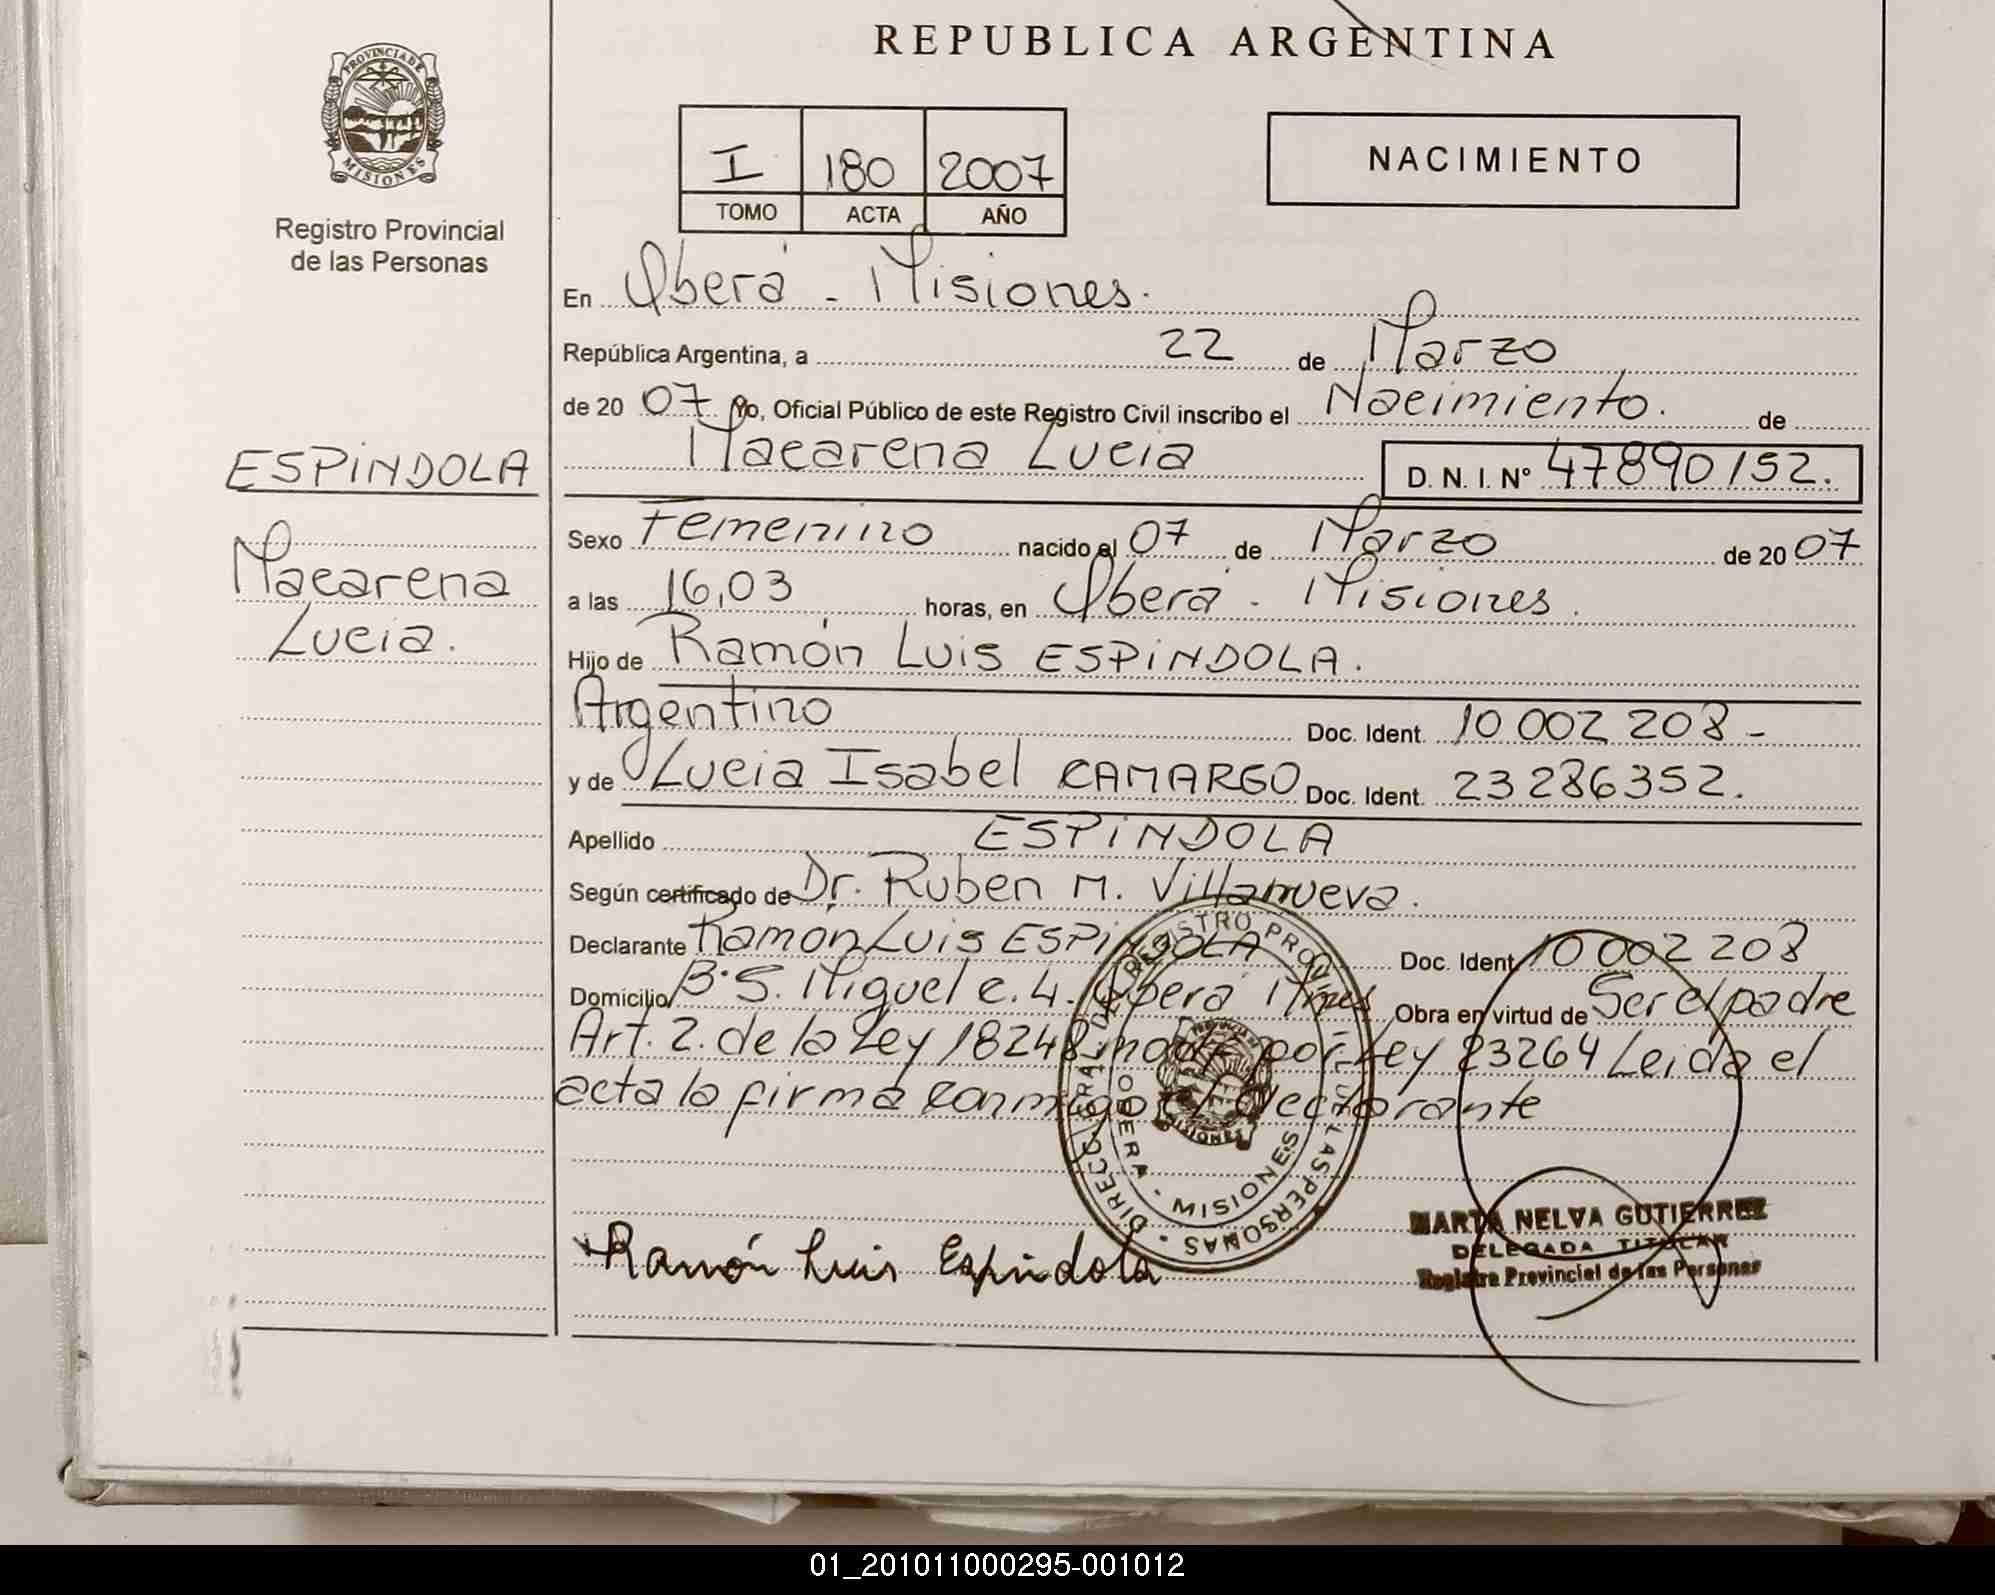 REPUBLICA ARGENTINA
PROVINCIA DE MISIONES
Registro Provincial
de las Personas
I 180 2007
TOMO ACTA AÑO
NACIMIENTO
En Oberá - Misiones.
República Argentina, a 22 de Marzo
de 20 07 Yo, Oficial Público de este Registro Civil inscribo el Nacimiento. de
Macarena Lucia D. N. I. Nº 47890152.
ESPINDOLA
Macarena
Lucia.
Sexo Femenino nacido el 07 de Marzo de 20 07
a las 16,03 horas, en Oberá - Misiones.
Hijo de Ramón Luis ESPINDOLA.
Argentino Doc. Ident. 10 002 208 -
y de Lucia Isabel CAMARGO Doc. Ident. 23286352.
Apellido ESPINDOLA
Según certificado de Dr. Ruben M. Villanueva.
Declarante Ramón Luis ESPINDOLA Doc. Ident. 10 002 208
Domicilio B. S. Miguel c. 4. Oberá Mnes Obra en virtud de Ser el padre
Art. 2. de la Ley 18248 modf por Ley 23264 Leida el
acta la firma conmigo el declarante
DIRECC. GRAL. DE REGISTRO PROV. DE LAS PERSONAS
OBERA - MISIONES
MISIONES
Ramón Luis Espindola
MARTA NELVA GUTIERREZ
DELEGADA TITULAR
Registro Provincial de las Personas
01_201011000295-001012